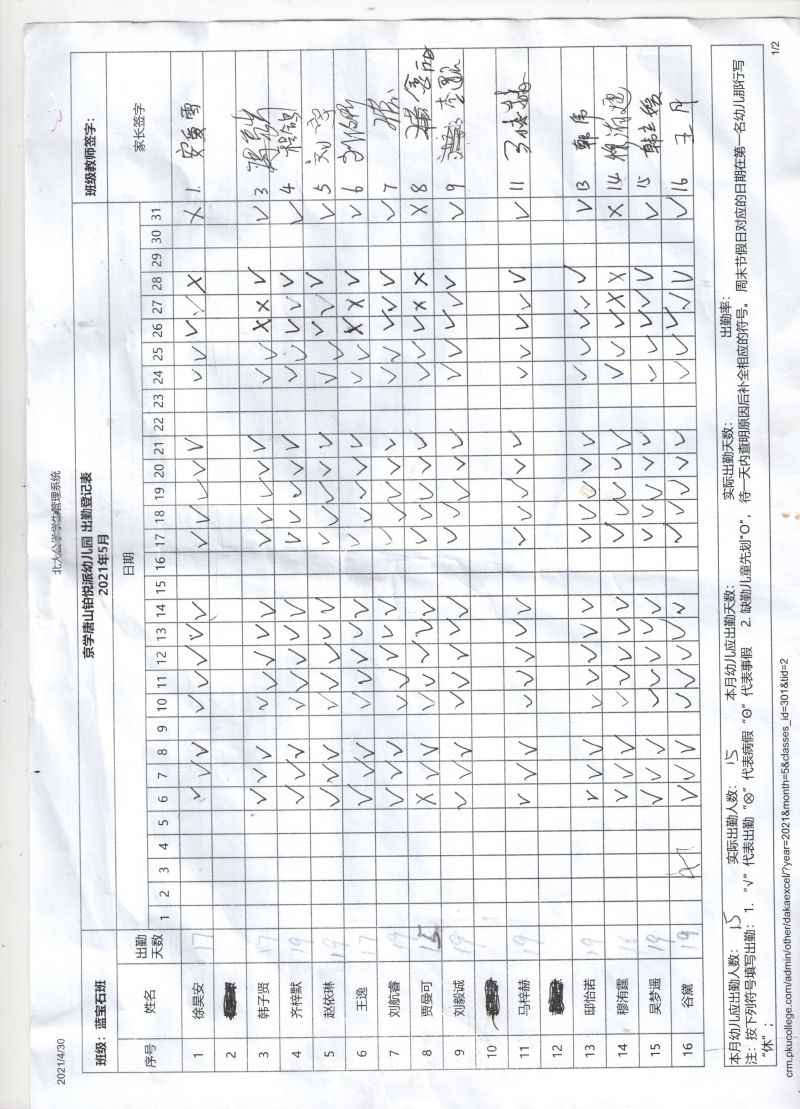 2021/4/30 北大公学学生管理系统
京学唐山铂悦派幼儿园 出勤登记表
2021年5月
班级：蓝宝石班 班级教师签字：
序号 姓名 出勤天数 日期 家长签字
1 2 3 4 5 6 7 8 9 10 11 12 13 14 15 16 17 18 19 20 21 22 23 24 25 26 27 28 29 30 31
1 徐昊安 17 √ √ √ √ √ √ √ √ √ √ √ √ √ √ √ √ √ × × 1.
2
3 韩子贤 17 √ √ √ √ √ √ √ √ √ √ √ √ √ √ √ × × √ √ 3
4 齐梓默 19 √ √ √ √ √ √ √ √ √ √ √ √ √ √ √ √ √ √ √ 4
5 赵依琳 19 √ √ √ √ √ √ √ √ √ √ √ √ √ √ √ √ √ √ √ 5
6 王逸 17 √ √ √ √ √ √ √ √ √ √ √ √ √ √ √ × × √ √ 6
7 刘航睿 19 √ √ √ √ √ √ √ √ √ √ √ √ √ √ √ √ √ √ √ 7
8 贾曼可 15 × √ √ √ √ √ √ √ √ √ √ √ √ √ √ √ × × × 8
9 刘毅诚 19 √ √ √ √ √ √ √ √ √ √ √ √ √ √ √ √ √ √ √ 9
10
11 马梓赫 19 √ √ √ √ √ √ √ √ √ √ √ √ √ √ √ √ √ √ √ 11
12
13 邸怡诺 19 √ √ √ √ √ √ √ √ √ √ √ √ √ √ √ √ √ √ √ 13 韩伟
14 穆洧霆 16 √ √ √ √ √ √ √ √ √ √ √ √ √ √ √ √ × × × 14
15 吴梦遥 19 √ √ √ √ √ √ √ √ √ √ √ √ √ √ √ √ √ √ √ 15
16 谷黛 19 √ √ √ √ √ √ √ √ √ √ √ √ √ √ √ √ √ √ √ 16 王月
本月幼儿应出勤人数： 15 实际出勤人数： 15 本月幼儿应出勤天数： 实际出勤天数： 出勤率：
注：按下列符号填写出勤：1. “√”代表出勤 “⊗”代表病假 “Θ”代表事假 2. 缺勤儿童先划"O"，待一天内查明原因后补全相应的符号。 周末节假日对应的日期在第一名幼儿那行写
“休”；
crm.pkucollege.com/admin/other/dakaexcel/?year=2021&month=5&classes_id=301&tid=2 1/2